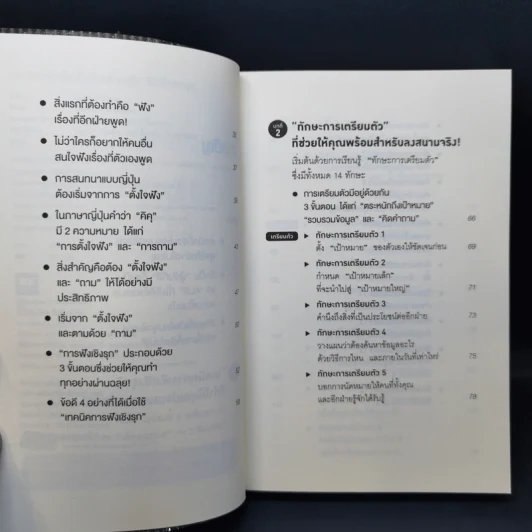 สิ่งแรกที่ต้องทำคือ "ฟัง"
เรื่องที่อีกฝ่ายพูด!
ไม่ว่าใครก็อยากให้คนอื่น
สนใจฟังเรื่องที่ตัวเองพูด
การสนทนาแบบญี่ปุ่น
ต้องเริ่มจากการ "ตั้งใจฟัง"
ในภาษาญี่ปุ่นคำว่า "คิคุ"
มี 2 ความหมาย ได้แก่
"การตั้งใจฟัง" และ "การถาม"
สิ่งสำคัญคือต้อง "ตั้งใจฟัง"
และ "ถาม" ให้ได้อย่างมี
ประสิทธิภาพ
เริ่มจาก "ตั้งใจฟัง"
และตามด้วย "ถาม"
"การฟังเชิงรุก" ประกอบด้วย
3 ขั้นตอนซึ่งช่วยให้คุณทำ
ทุกอย่างผ่านฉลุย!
ข้อดี 4 อย่างที่ได้เมื่อใช้
"เทคนิคการฟังเชิงรุก"
บทที่ 2
"ทักษะการเตรียมตัว"
ที่ช่วยให้คุณพร้อมสำหรับลงสนามจริง!
เริ่มต้นด้วยการเรียนรู้ "ทักษะการเตรียมตัว"
ซึ่งมีทั้งหมด 14 ทักษะ
การเตรียมตัวมีอยู่ด้วยกัน
3 ขั้นตอน ได้แก่ "ตระหนักถึงเป้าหมาย"
"รวบรวมข้อมูล" และ "คิดคำถาม" 66
เตรียมตัว
ทักษะการเตรียมตัว 1
ตั้ง "เป้าหมาย" ของตัวเองให้ชัดเจนก่อน 69
ทักษะการเตรียมตัว 2
กำหนด "เป้าหมายเล็ก"
ที่จะนำไปสู่ "เป้าหมายใหญ่" 71
ทักษะการเตรียมตัว 3
คำนึงถึงสิ่งที่เป็นประโยชน์ต่ออีกฝ่าย 73
ทักษะการเตรียมตัว 4
วางแผนว่าต้องค้นหาข้อมูลอะไร
ด้วยวิธีการไหน และภายในวันที่เท่าไหร่
ทักษะการเตรียมตัว 5
บอกการนัดหมายให้คนที่ทั้งคุณ
และอีกฝ่ายรู้จักได้รับรู้